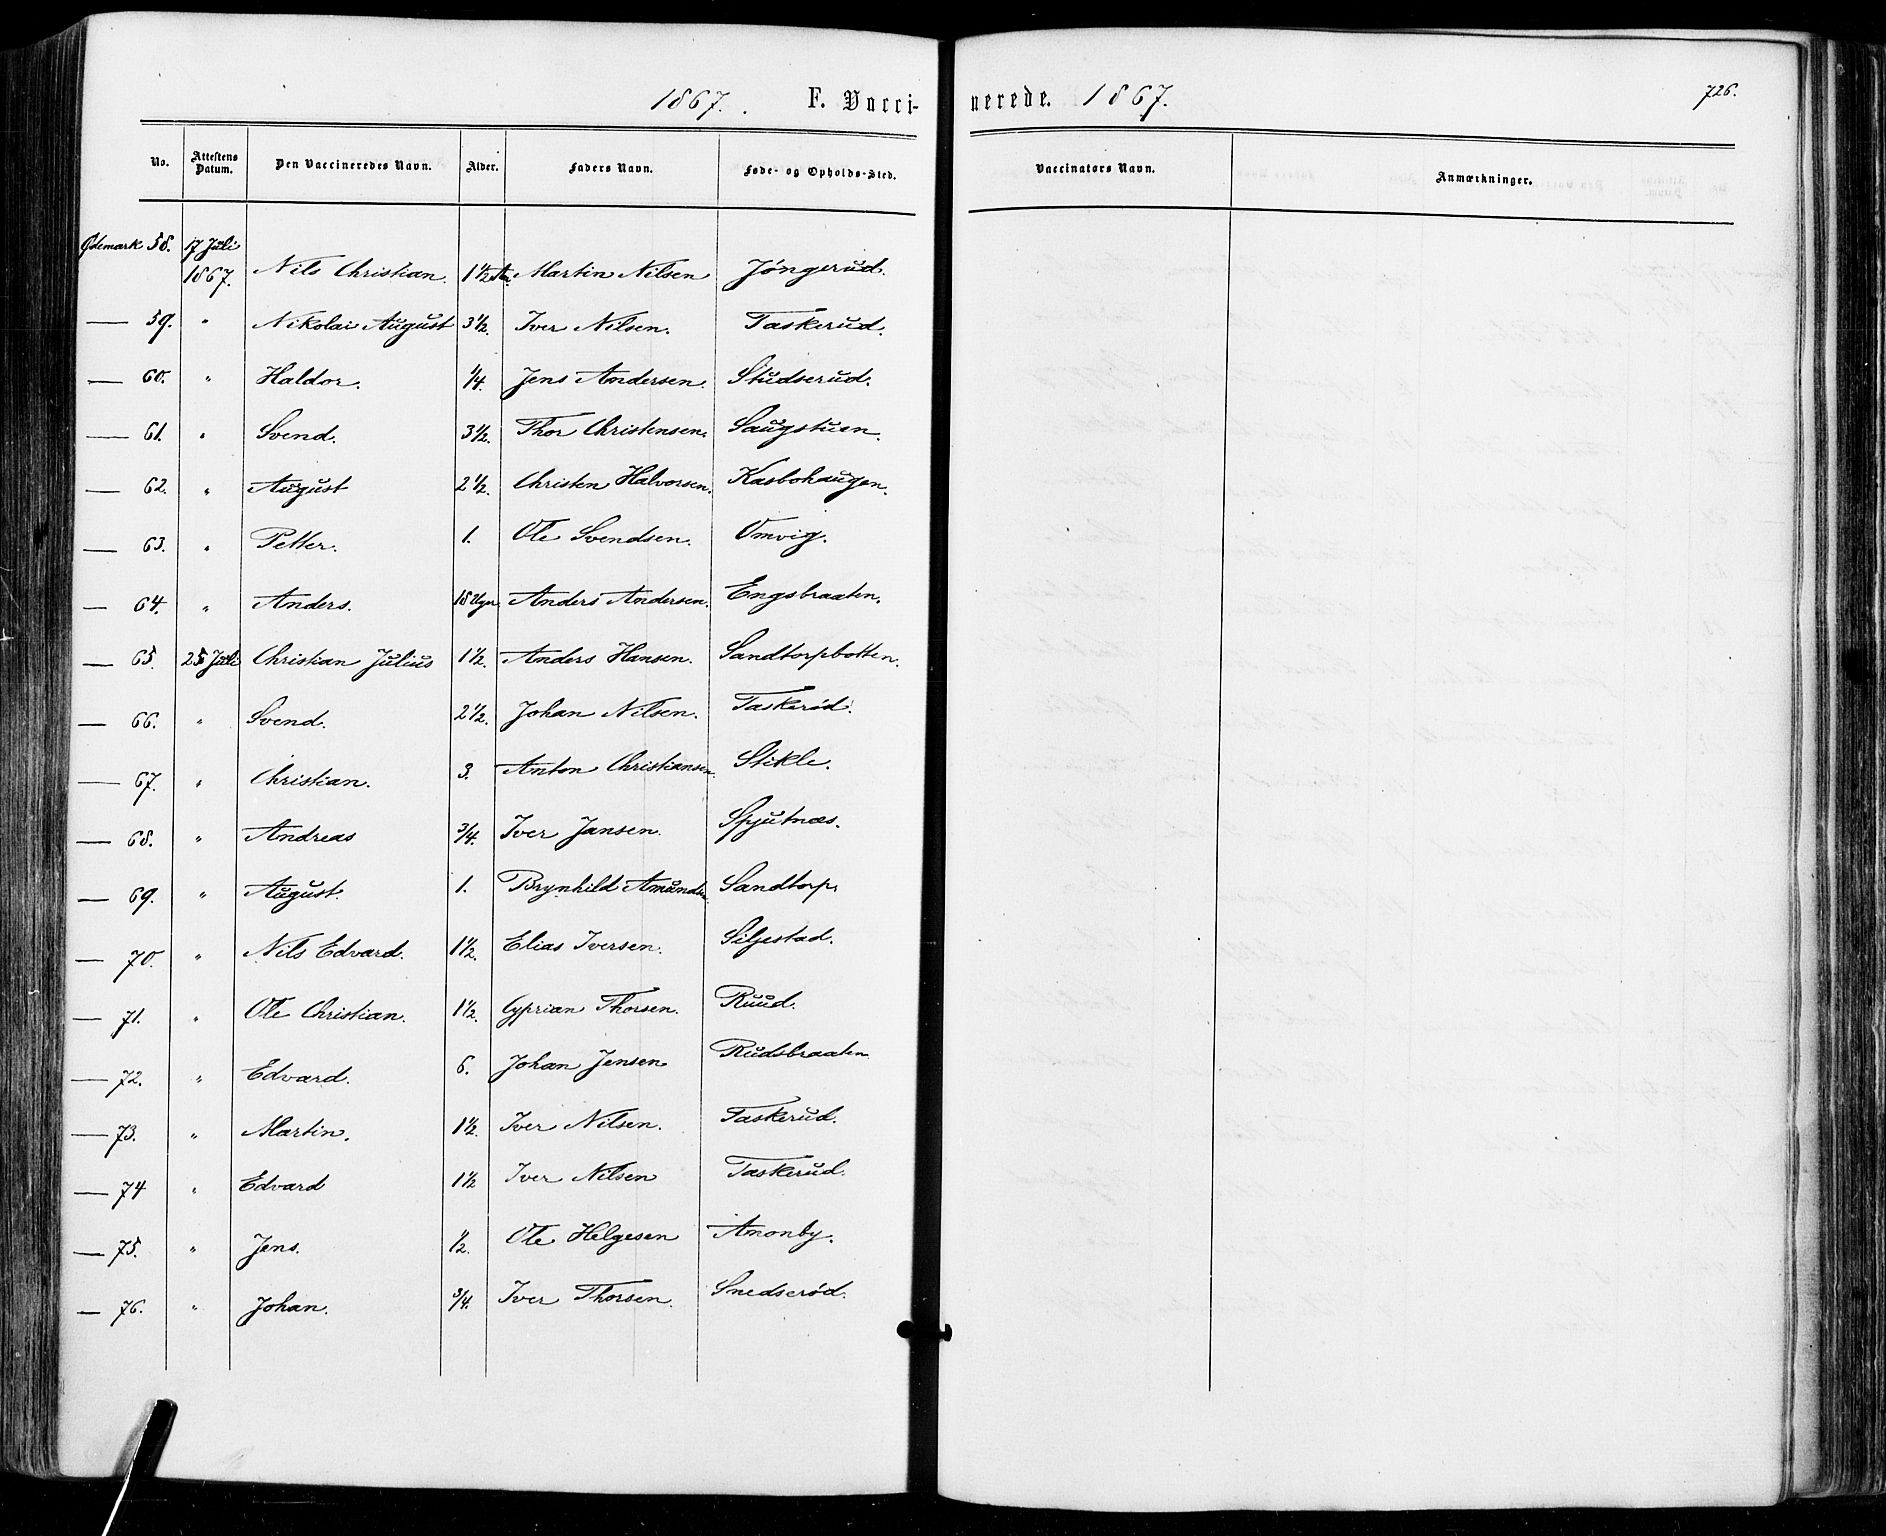 1867. F. Vacci-nerede. 1867. 726.
No. Attestens Datum. Den Vaccineredes Navn. Alder. Faders Navn. Føde- og Opholds-Sted. Vaccinators Navn. Anmærkninger.
Ødemark 58. 17 Juli 1867. Nils Christian. 1 1/2 Martin Nilsen Jöngerud.
— 59. " Nikolai August 3 1/2. Iver Nilsen. Taskerud.
— 60. " Haldor. 1/4. Jens Andersen. Studserud.
— 61. " Svend. 3 1/2. Thor Christensen. Saugstuen.
— 62. " August 2 1/2. Christen Halvorsen. Kasbohaugen.
— 63. " Petter. 1. Ole Svendsen. Omvig.
— 64. " Anders. 18 Uger. Anders Andersen. Engsbraaten.
— 65. 25 Juli Christian Julius 1 1/2. Anders Hansen. Sandtorpbotten.
— 66. " Svend. 2 1/2. Johan Nilsen. Taskerød.
— 67. " Christian. 3. Anton Christiansen. Stikle.
— 68. " Andreas 3/4. Iver Jansen. Spjutnæs.
— 69. " August. 1. Brynhild Amundsen. Sandtorp.
— 70. " Nils Edvard. 1 1/2. Elias Iversen. Siljestad.
— 71. " Ole Christian. 1 1/2. Cyprian Thorsen. Ruud.
— 72. " Edvard. 6. Johan Jensen Rudsbraaten
— 73. " Martin. 1 1/2. Iver Nilsen. Taskerud.
— 74 " Edvard 1 1/2 Iver Nilsen Taskerud.
— 75. " Jens. 1/2. Ole Helgesen Amonby.
— 76. " Johan. 3/4. Iver Thorsen. Snedserød.